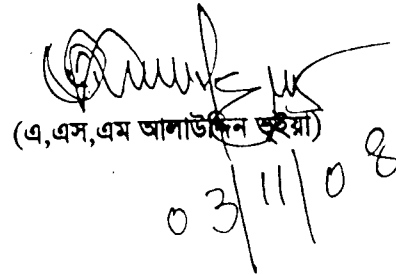 (এ,এস,এম আলাউদ্দিন ভূইয়া)
03/11/08